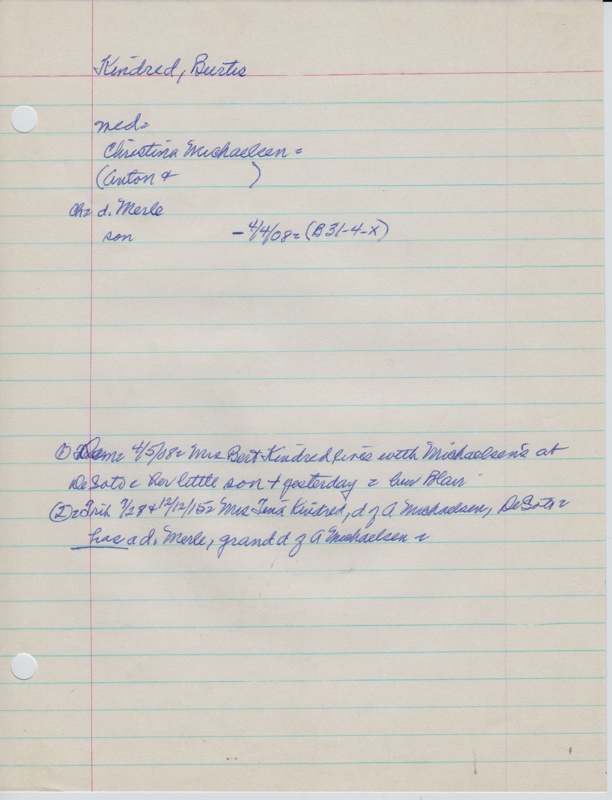 Kindred, Burtis
med=
Christina Michaelsen=
(Anton + )
Ch= d. Merle
son -4/4/08= (B31-4-X)
(1) Dem= 4/5/08= Mrs Bert Kindred lives with Michaelsen's at
DeSoto = her little son + yesterday = bur Blair
(2)= Trib 7/28 + 12/12/15= Mrs Tena Kindred, d of A Michaelsen, DeSoto=
has a d. Merle, grand d of A Michaelsen =